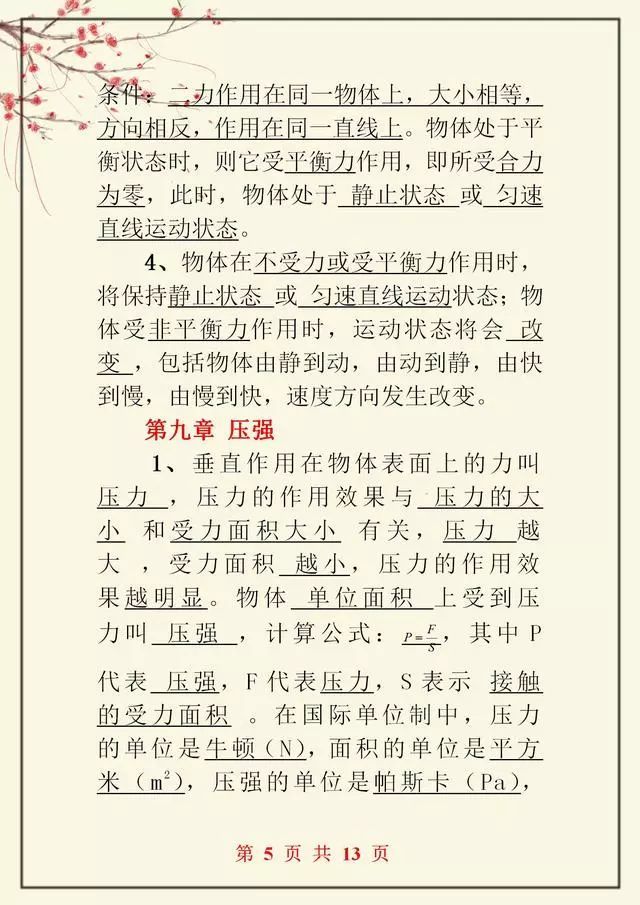 条件：二力作用在同一物体上，大小相等，
方向相反，作用在同一直线上。物体处于平
衡状态时，则它受平衡力作用，即所受合力
为零，此时，物体处于 静止状态 或 匀速
直线运动状态。
4、物体在不受力或受平衡力作用时，
将保持静止状态 或 匀速直线运动状态；物
体受非平衡力作用时，运动状态将会 改
变 ，包括物体由静到动，由动到静，由快
到慢，由慢到快，速度方向发生改变。
第九章 压强
1、垂直作用在物体表面上的力叫
压力 ，压力的作用效果与 压力的大
小 和受力面积大小 有关，压力 越
大 ，受力面积 越小，压力的作用效
果越明显。物体 单位面积 上受到压
力叫 压强 ，计算公式：P=F/S，其中 P
代表 压强，F 代表压力，S 表示 接触
的受力面积 。在国际单位制中，压力
的单位是牛顿（N），面积的单位是平方
米（m²），压强的单位是帕斯卡（Pa），
第 5 页 共 13 页